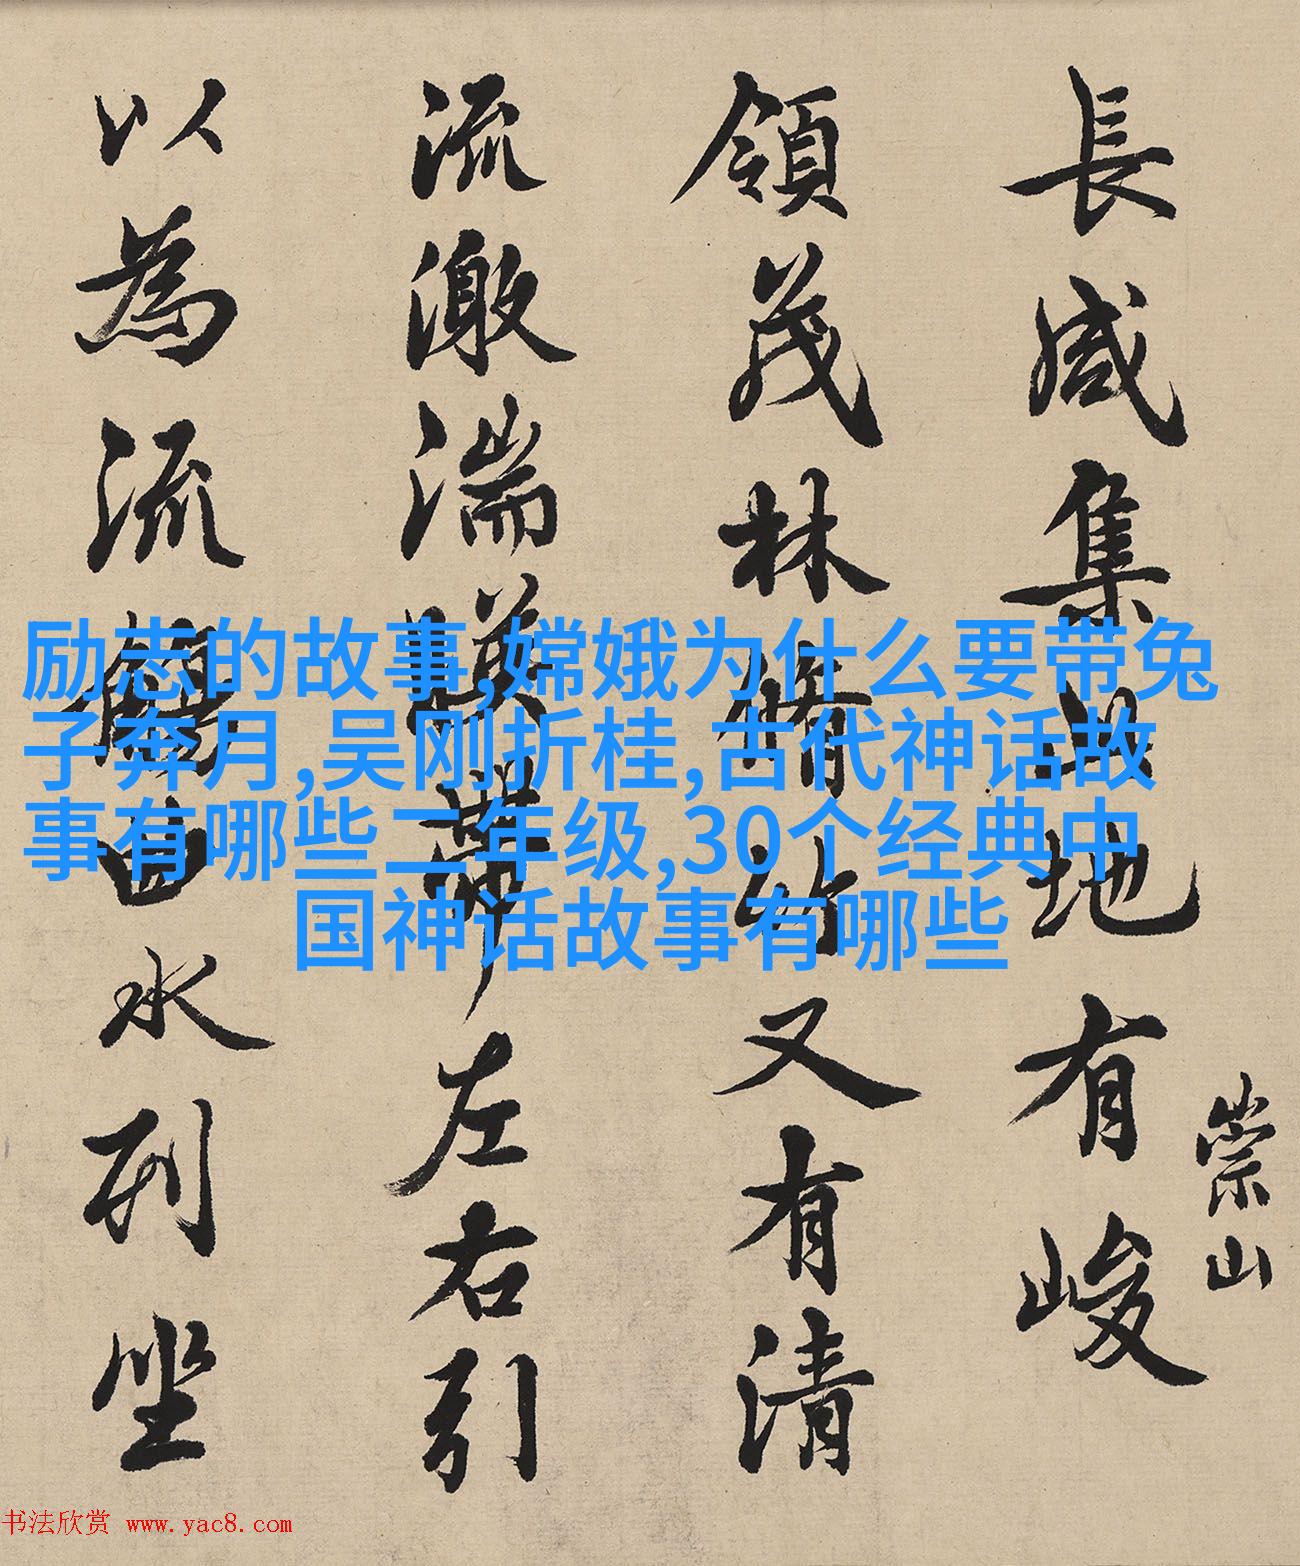 崇山
長咸集此地有峻
領茂林脩竹又有清
流激湍暎帶左右引
以為流觴曲水列坐
励志的故事,嫦娥为什么要带兔
子奔月,吴刚折桂,古代神话故
事有哪些二年级,30个经典中
国神话故事有哪些
书法欣赏 www.yac8.com